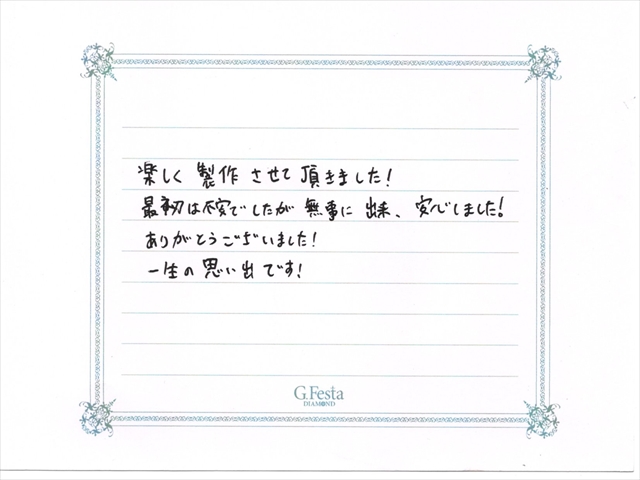 楽しく 製作 させて 頂きました!
最初は不安でしたが 無事に 出来、安心しました!
ありがとうございました!
一生の 思い出 です!
G.Festa
DIAMOND